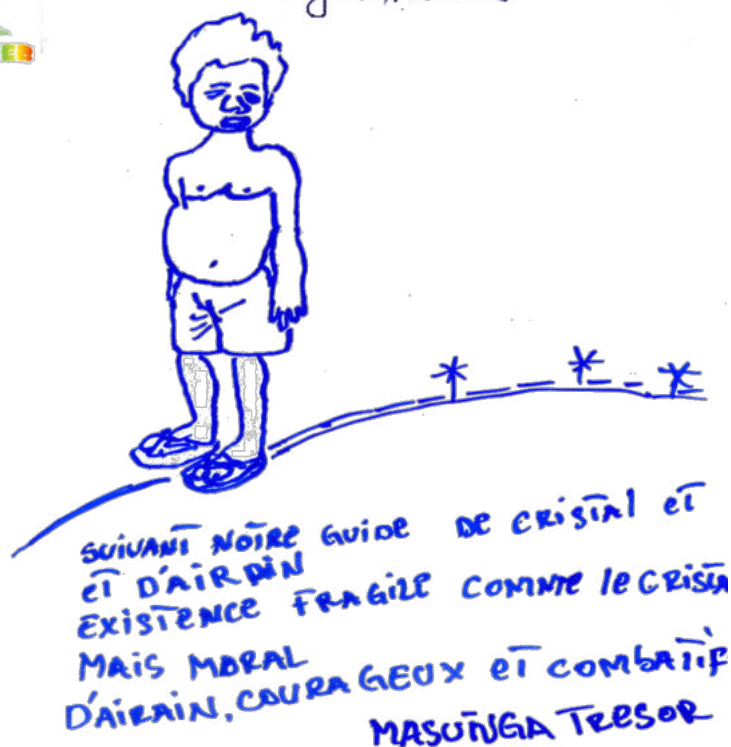 SUIVANT NOTRE GUIDE DE CRISTAL ET
ET D'AIRAIN
EXISTENCE FRAGILE COMME le CRISTA
MAIS MORAL
D'AIRAIN, COURAGEUX ET COMBATIF
MASUNGA TRESOR